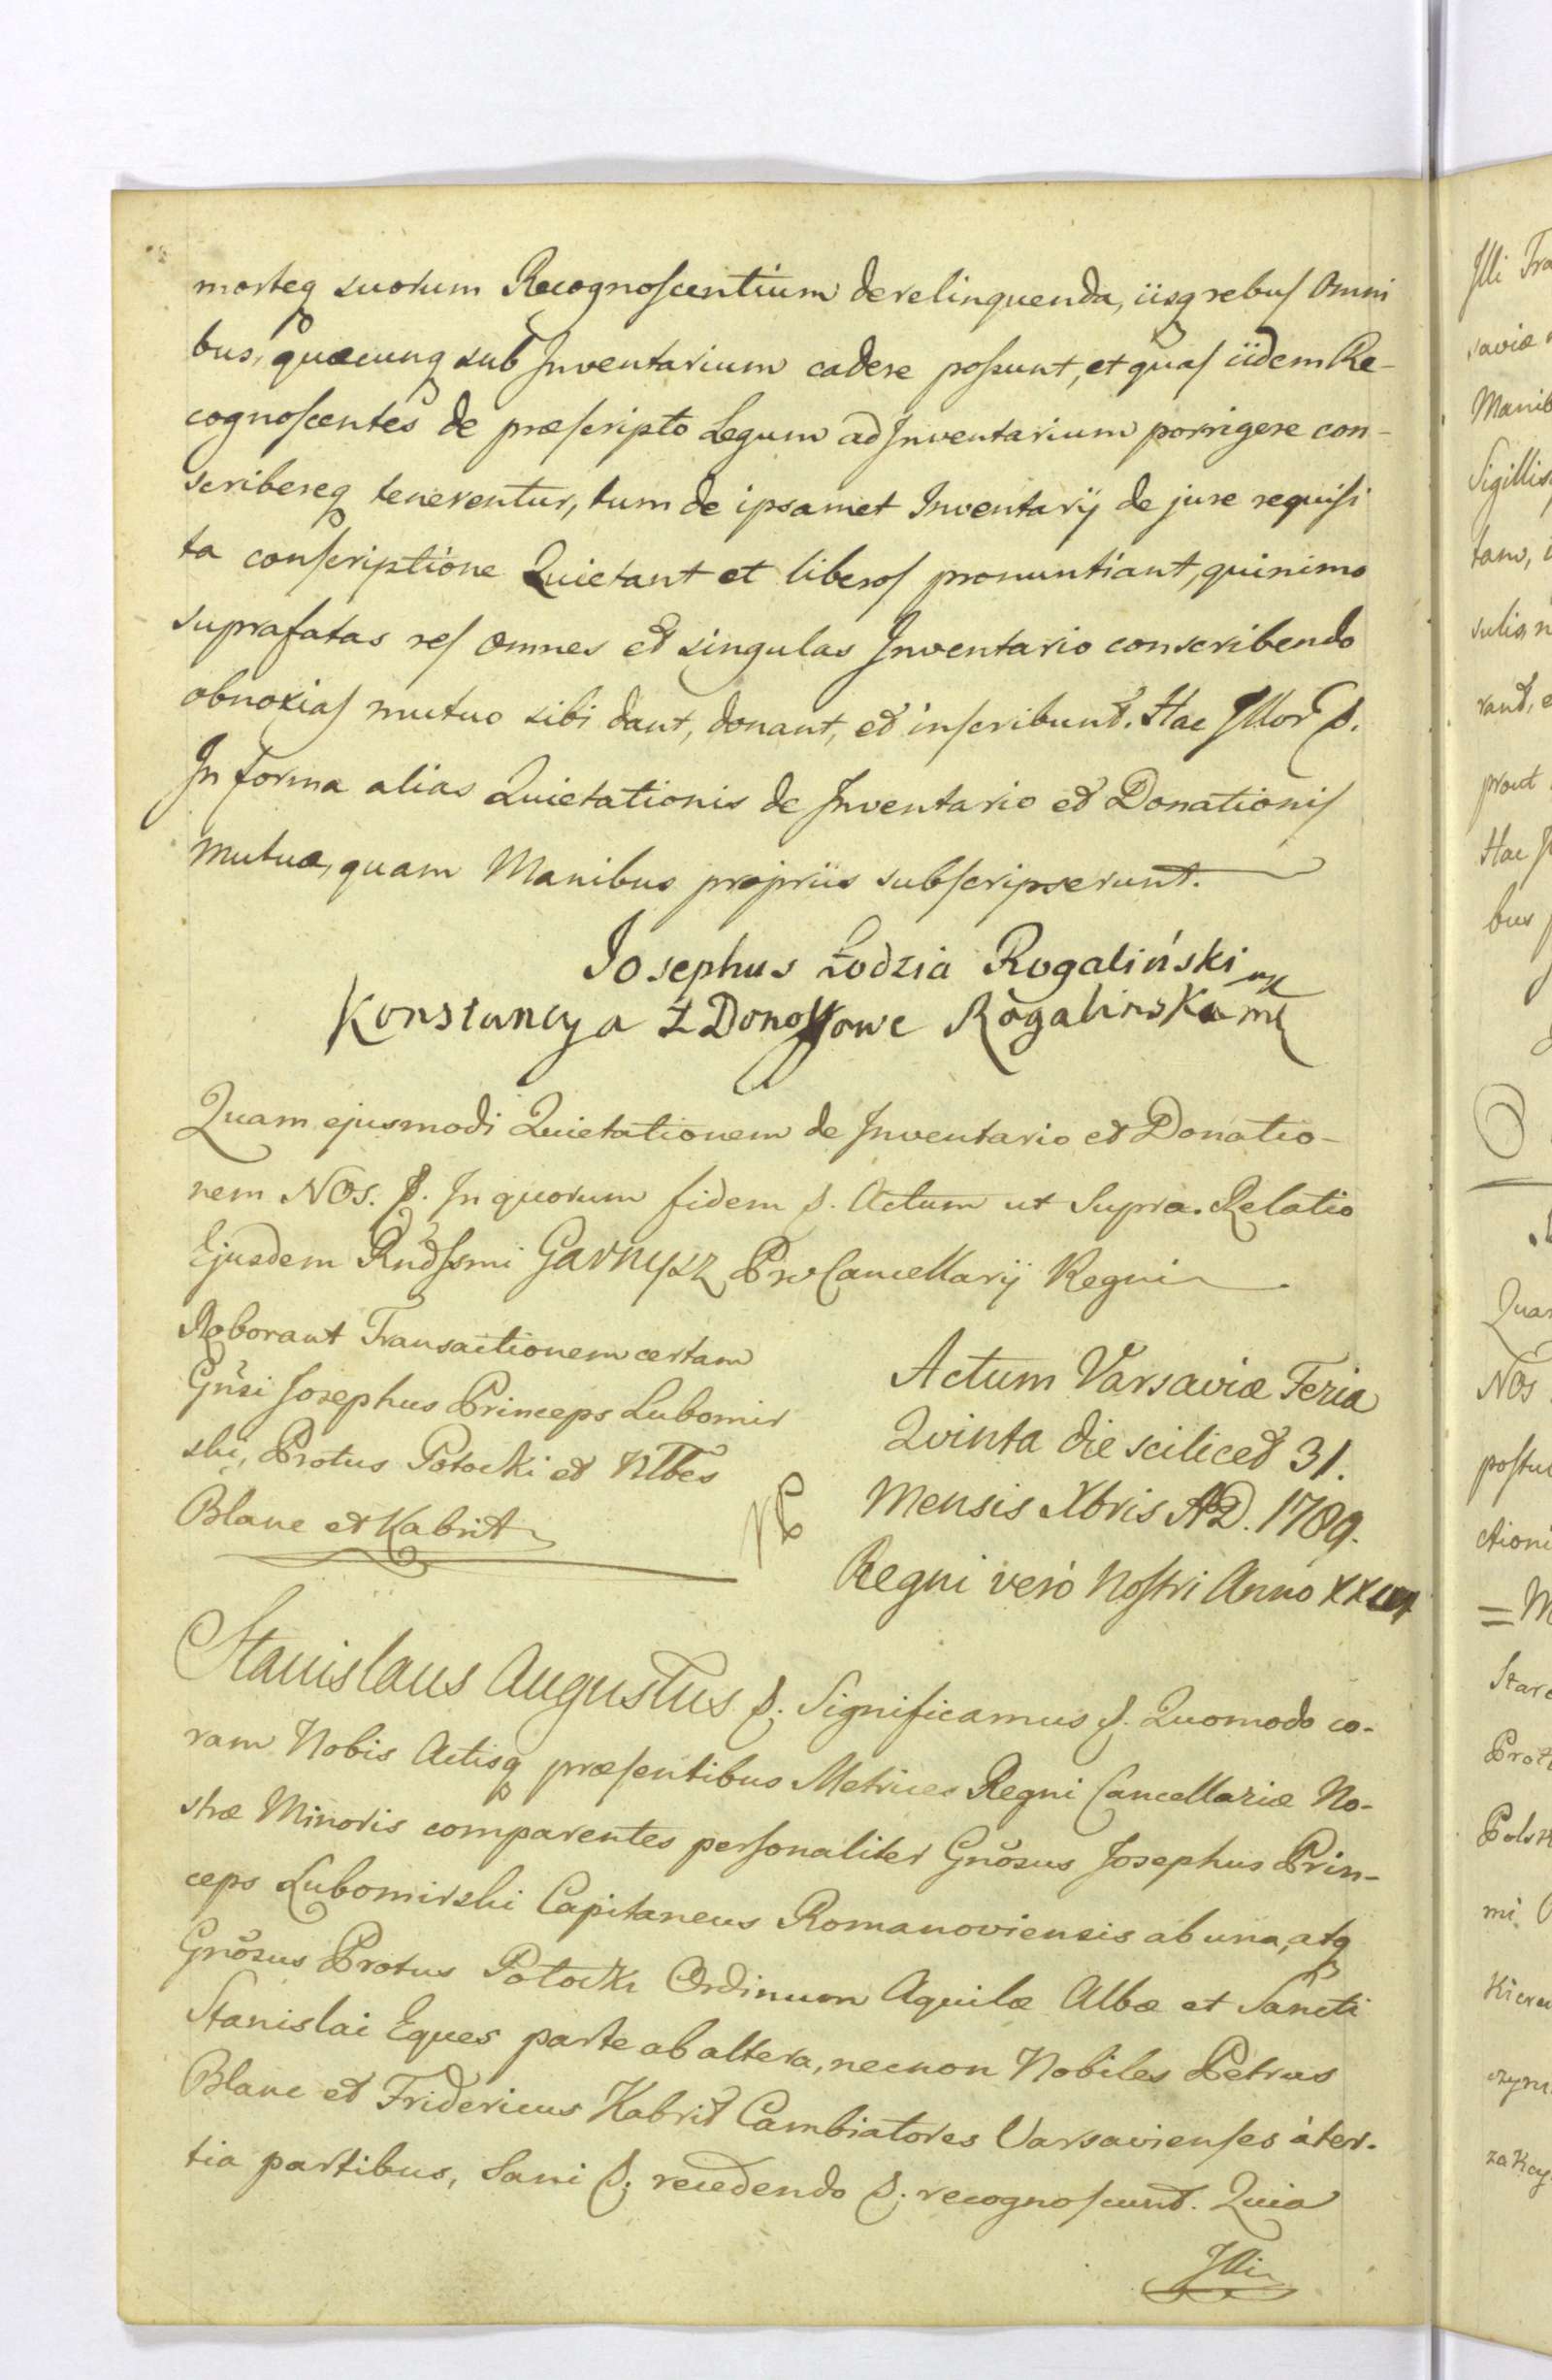 morteq suorum Recognoscentium derelinquenda, iisq rebus Omni
bus, quæcunq sub Inventarium cadere possunt, et quas iidem Re-
cognoscentes de præscripto Legum ad Inventarium porrigere con-
scribereq tenerentur, tum de ipsamet Inventarij de jure requisi
ta conscriptione Quietant et liberos pronuntiant, quinimo
suprafatas res omnes et singulas Inventario conscribendo
obnoxias mutuo sibi dant, donant, et inscribunt. Hac Illor
In forma alias Quietationis de Inventario et Donationis
Mutuæ, quam Manibus propriis subscripserunt.
Josephus Łodzia Rogaliński
Konstancya Rogalinska
Quam ejusmodi Quietationem de Inventario et Donatio-
nem NOS. In quorum fidem Actum ut Supra. Relatio
Ejusdem Rndssmi Garnysz ProCancellarij Regni
Roborant Transactionem certam
Gnsi Josephus Princeps Lubomir
ski, Protus Potocki et Nlbes
Blanc et Kabrit
Actum Varsaviæ Feria
Quinta die scilicet 31.
Mensis Xbris AD. 1789.
Regni verò Nostri Anno
Stanislaus Augustus Significamus Quomodo co-
ram Nobis Actisq præsentibus Metrices Regni Cancellariæ No-
stræ Minoris comparentes personaliter Gnosus Josephus Prin-
ceps Lubomirski Capitaneus Romanoviensis ab una, atq
Gnosus Protus Potocki Ordinum Aquilæ Albæ et Sancti
Stanislai Eques parte ab altera, necnon Nobiles Petrus
Blanc et Fridericus Kabrit Cambiatores Varsavienses à ter-
tia partibus, Sani recedendo recognoscunt. Quia
Illi